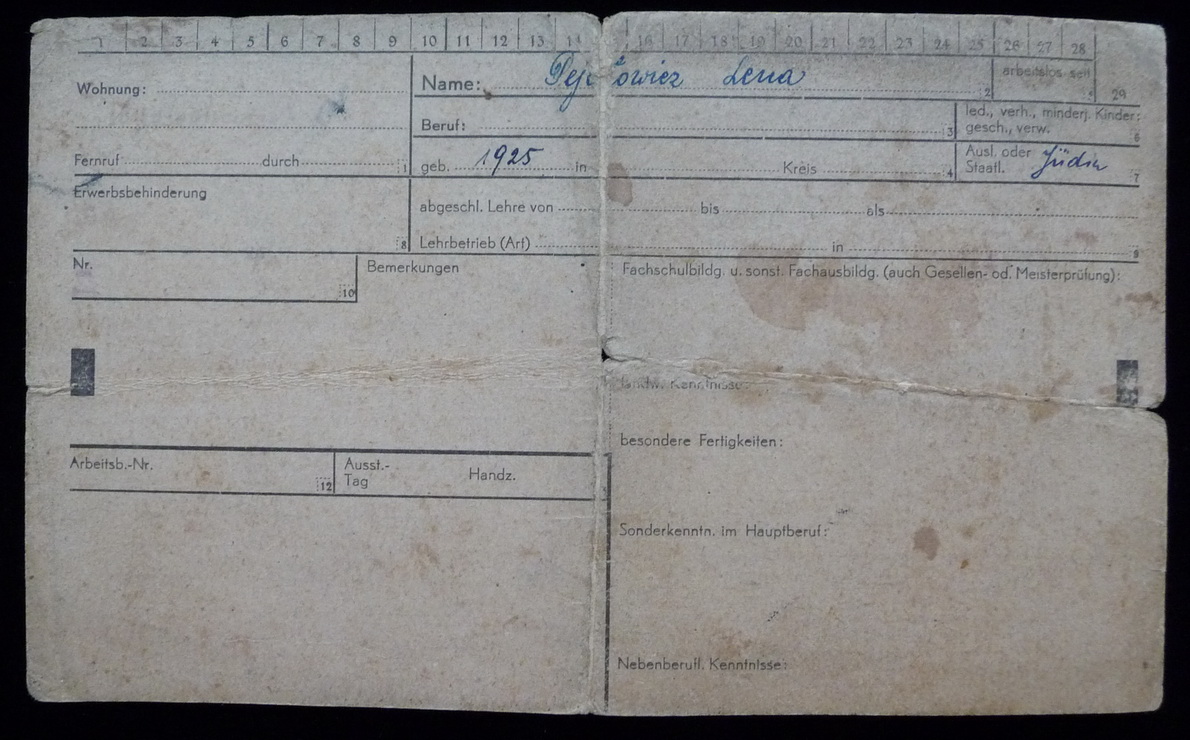 1 2 3 4 5 6 7 8 9 10 11 12 13 14 16 17 18 19 20 21 22 23 24 25 26 27 28
Wohnung: Name: Lena 2 arbeitslos seit 29
Beruf: 3 led., verh., minderj. Kinder:
gesch., verw. 6
Fernruf durch 1 geb. 1925 in Kreis 4 Ausl. oder
Staatl. Jüdin 7
Erwerbsbehinderung 8
abgeschl. Lehre von bis als
Lehrbetrieb (Art) in 9
Nr. 10 Bemerkungen Fachschulbildg. u. sonst. Fachausbildg. (auch Gesellen- od. Meisterprüfung):
Kenntnisse
besondere Fertigkeiten:
Arbeitsb.-Nr. 12 Ausst.-
Tag Handz.
Sonderkenntn. im Hauptberuf:
Nebenberufl. Kenntnisse: